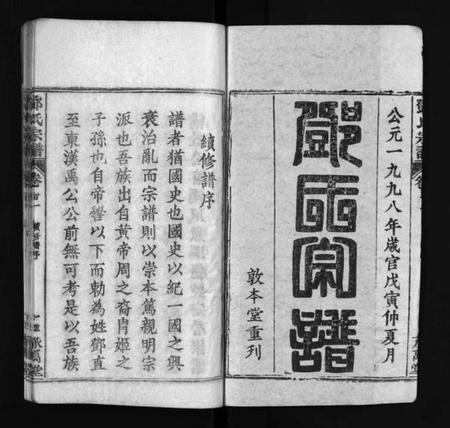 公元一九九八年歲官戊寅仲夏月
鄧氏宗譜
敦本堂重刊
續修譜序
譜者猶國史也國史以紀一國之興
衰治亂而宗譜則以崇本篤親明宗
派也吾族出自黃帝周之裔胄姬之
子孫也自帝嚳以下而勅為姓鄧直
至東漢禹公公前無可考是以吾族
鄧氏宗譜
卷首
續修譜序